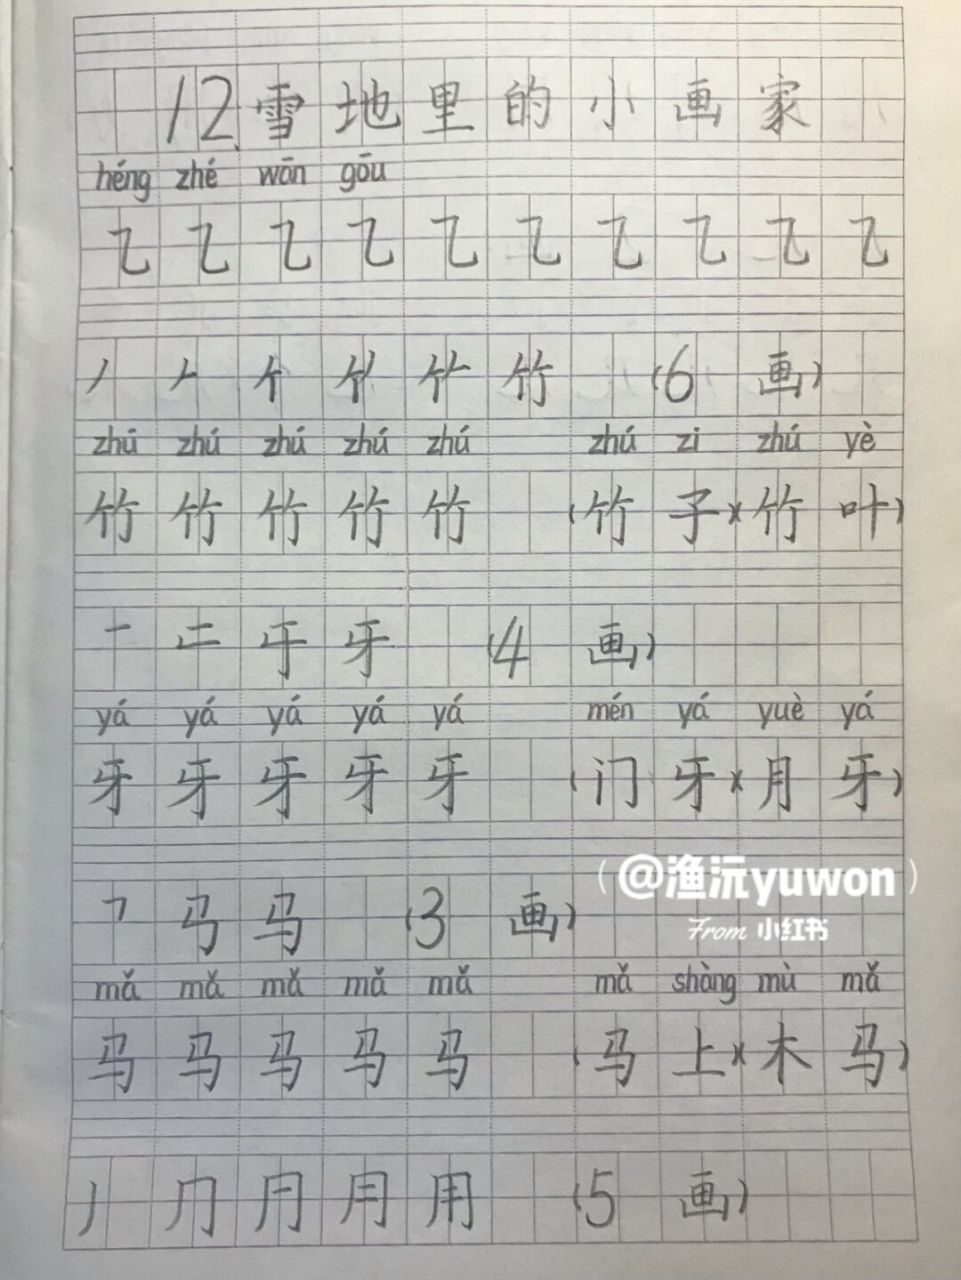 12 雪地里的小画家
héng zhé wān gōu
乙 乙 乙 乙 乙 乙 乙 乙 乙 乙
竹 (6 画)
zhú zhú zhú zhú zhú zhú zi zhú yè
竹 竹 竹 竹 竹 (竹子)(竹叶)
一 二 牙 (4 画)
yá yá yá yá yá mén yá yuè yá
牙 牙 牙 牙 牙 (门牙)(月牙)
(@渔沅yuwon)
马 (3 画)
From 小红书
mǎ mǎ mǎ mǎ mǎ mǎ shàng mù mǎ
马 马 马 马 马 (马上)(木马)
丿 冂 月 用 (5 画)